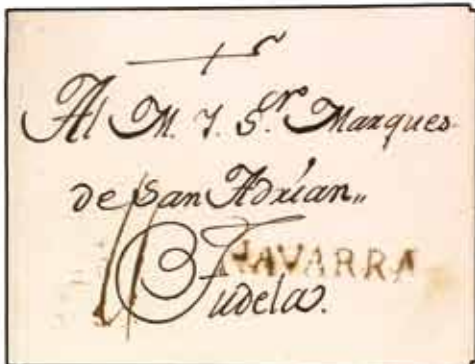 Al M. I. S.or Marques
de San Adrian„
NAVARRA
Tudela.